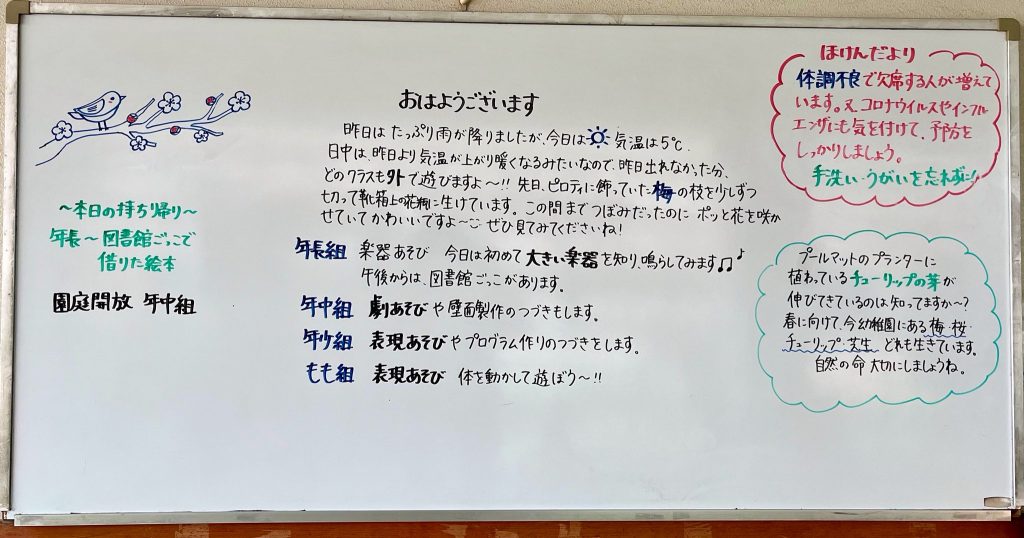 おはようございます
昨日は たっぷり雨が降りましたが、今日は 気温は5℃.
日中は、昨日より気温が上がり暖くなるみたいなので、昨日出れなかった分、
どのクラスも外で遊びますよ〜!! 先日、ピロティに飾っていた梅の枝を少しずつ
切って靴箱上の花瓶に生けています。この間までつぼみだったのに ポッと花を咲か
せていてかわいいですよ〜 ぜひ見てみてくださいね!
年長組 楽器あそび 今日は初めて大きい楽器を知り、鳴らしてみます♫♪
午後からは、図書館ごっこがあります。
年中組 劇あそびや壁面製作のつづきもします。
年少組 表現あそびやプログラム作りのつづきをします。
もも組 表現あそび 体を動かして遊ぼう〜!!
〜本日の持ち帰り〜
年長〜図書館ごっこで
借りた絵本
園庭開放 年中組
ほけんだより
体調不良で欠席する人が増えて
います。又、コロナウイルスやインフル
エンザにも気を付けて、予防を
しっかりしましょう。
手洗い・うがいを忘れずに!!
プールマットのプランターに
植わっているチューリップの芽が
伸びてきているのは知ってますか〜?
春に向けて、今幼稚園にある梅・桜・
チューリップ・芝生 どれも生きています。
自然の命 大切にしましょうね。